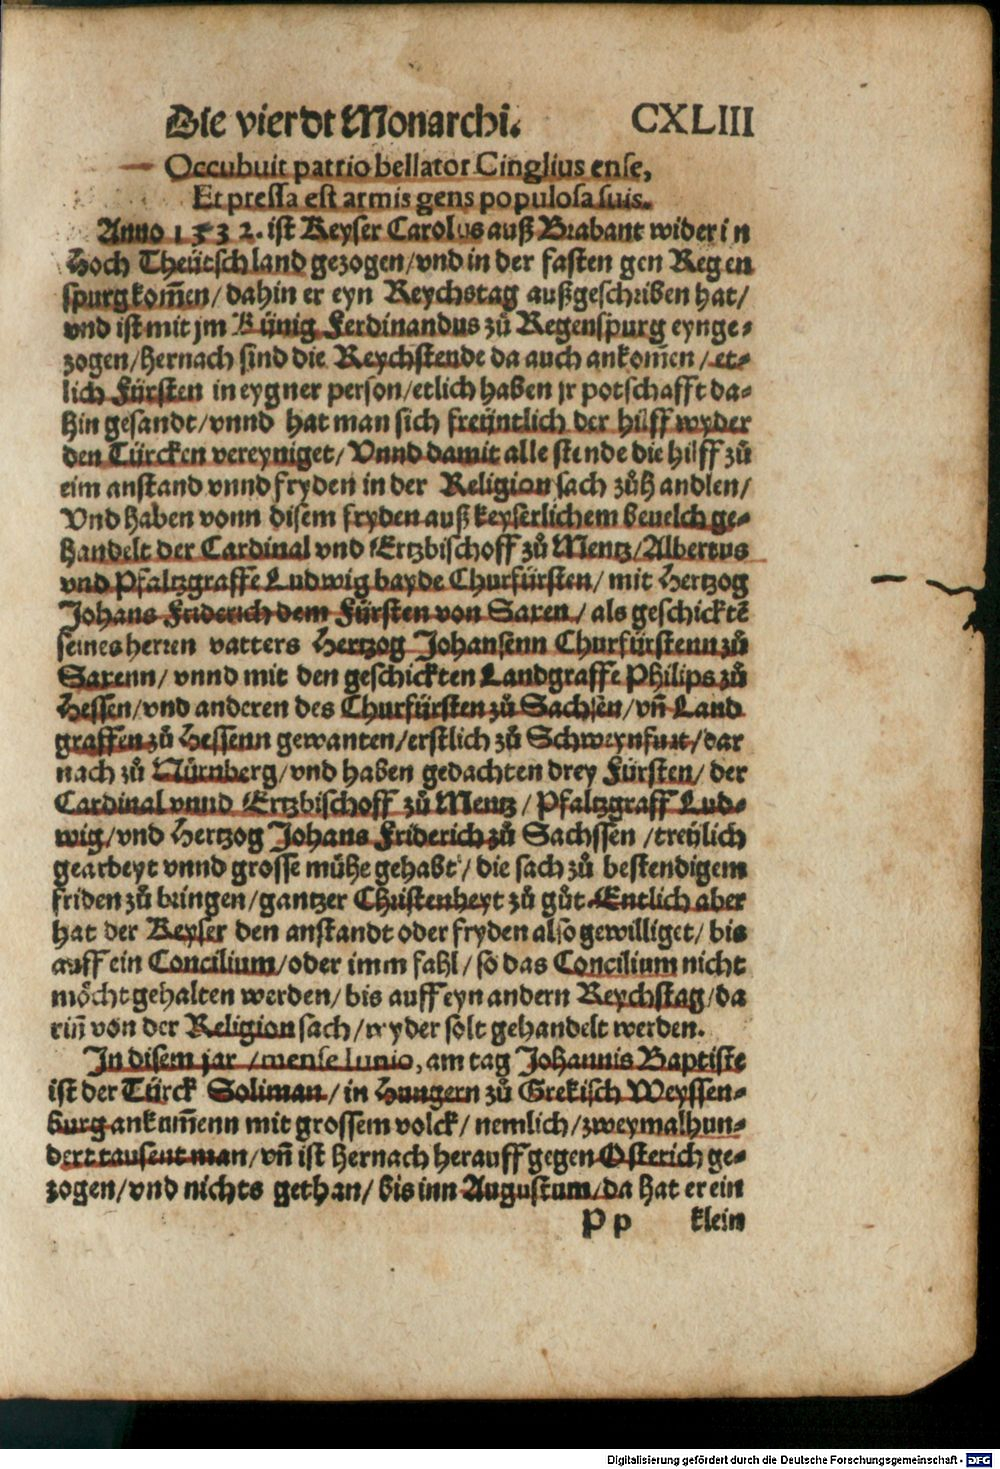 Die vierdt Monarchi. CXLIII
Occubuit patrio bellator Cinglius ense,
Et pressa est armis gens populosa suis.
Anno 1532. ist Keyser Carolus auß Brabant wider in
Hoch Theütschland gezogen/vnd in der fasten gen Regen
spurg kom̃en/dahin er eyn Reychstag außgeschriben hat/
vnd ist mit jm Künig Ferdinandus zů Regenspurg eynge-
zogen/hernach sind die Reychstende da auch ankom̃en/et-
lich Fürsten in eygner person/etlich haben jr potschafft da-
hin gesandt/vnnd hat man sich freüntlich der hilff wyder
den Türcken vereyniget/Vnnd damit alle stende die hilff zů
eim anstand vnnd fryden in der Religion sach zůhandlen/
Vnd haben vonn disem fryden auß keyserlichem beuelch ge-
handelt der Cardinal vnd Ertzbischoff zů Mentz/Albertus
vnd Pfaltzgraffe Ludwig bayde Churfürsten/mit Hertzog
Johans Friderich dem Fürsten von Saxen/als geschicktẽ
seines herren vatters Hertzog Johansenn Churfürstenn zů
Saxenn/vnnd mit den geschickten Landgraffe Philips zů
Hessen/vnd anderen des Churfürsten zů Sachsen/vñ Land
graffen zů Hessenn gewanten/erstlich zů Schweynfurt/dar
nach zů Nürnberg/vnd haben gedachten drey Fürsten/der
Cardinal vnnd Ertzbischoff zů Mentz/Pfaltzgraff Lud-
wig/vnd Hertzog Johans Friderich zů Sachssen/treülich
gearbeyt vnnd grosse mühe gehabt/die sach zů bestendigem
friden zů bringen/gantzer Christenheyt zů gůt. Entlich aber
hat der Keyser den anstandt oder fryden also gewilliget/bis
auff ein Concilium/oder imm fahl/so das Concilium nicht
möcht gehalten werden/bis auff eyn andern Reychstag/da
riñ von der Religion sach/wyder solt gehandelt werden.
In disem jar/mense Iunio, am tag Johannis Baptiste
ist der Türck Soliman/in Hungern zů Grekisch Weyssen-
burg ankum̃enn mit grossem volck/nemlich/zweymalhun-
dert tausent man/vñ ist hernach herauff gegen Osterich ge-
zogen/vnd nichts gethan/bis inn Augustum/da hat er ein
Pp klein
Digitalisierung gefördert durch die Deutsche Forschungsgemeinschaft - DFG